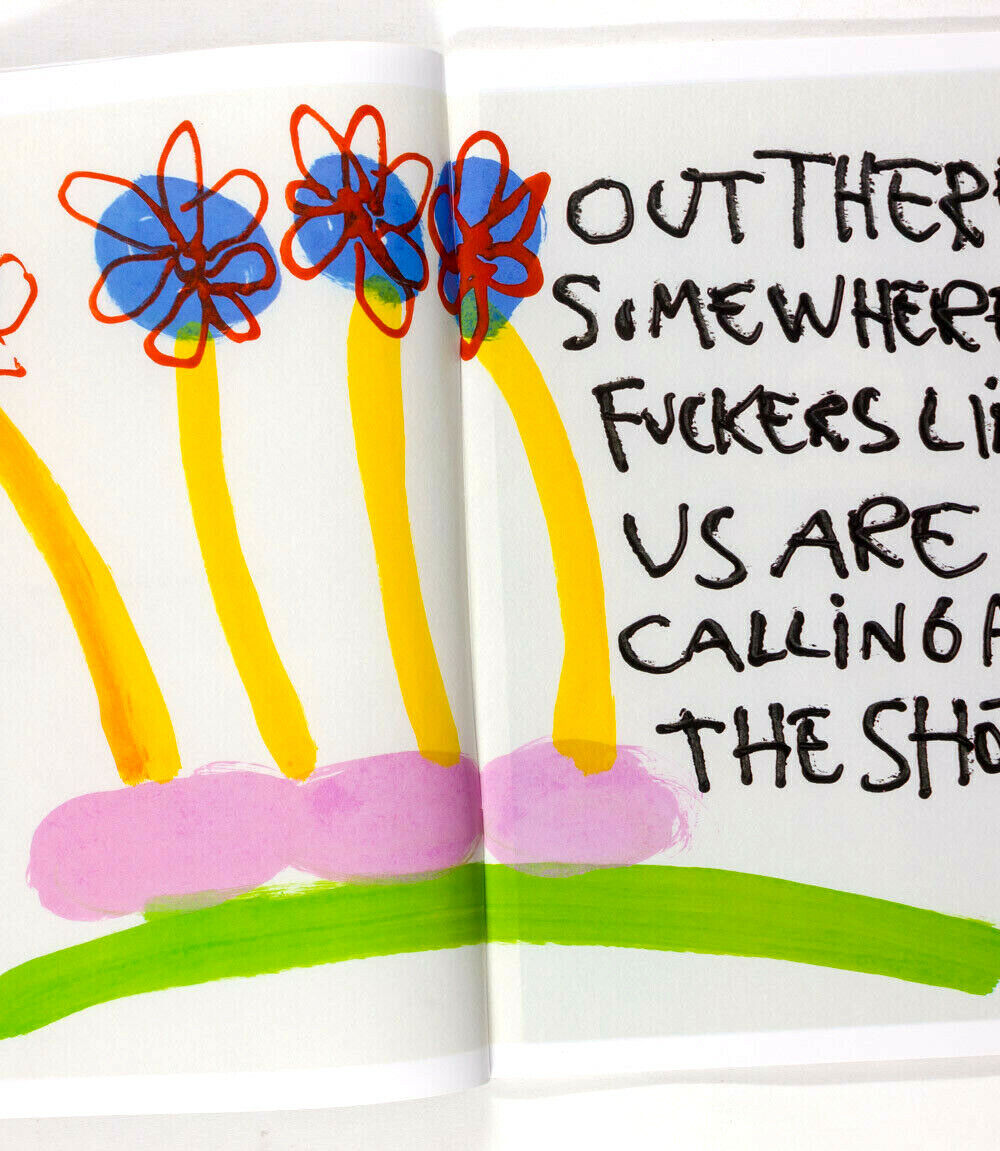 OUT THER
SOMEWHERE
FUCKERS LI
US ARE
CALLING A
THE SHO